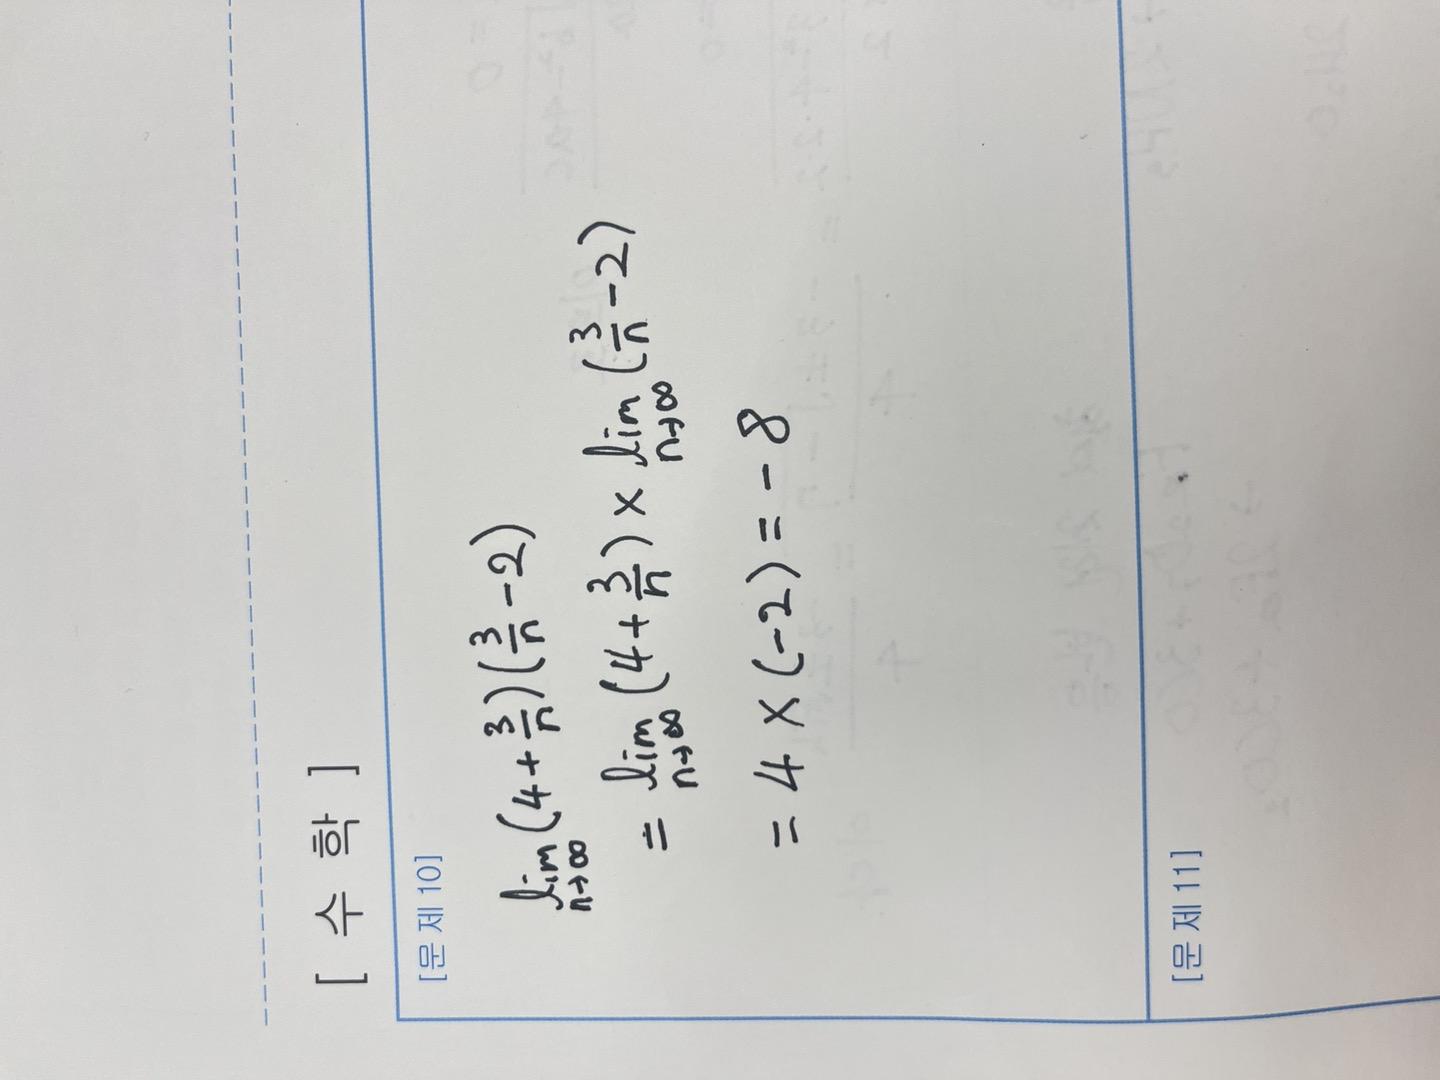 [ 수 학 ]
[문 제 10]
lim n→∞ (4+3/n)(3/n-2)
= lim n→∞ (4+3/n) × lim n→∞ (3/n-2)
= 4 × (-2) = -8
[문 제 11]